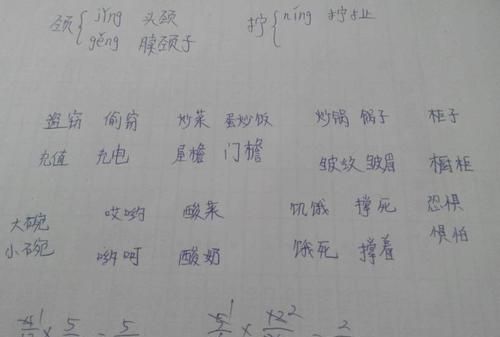 颈 { jǐng 头颈 拧 { níng 拧扯
gěng 脖颈子
盗窃 偷窃 炒菜 蛋炒饭 炒锅 锅子 柜子
充值 充电 屋檐 门檐 皱纹 皱眉 橱柜
大碗 哎哟 酸菜 饥饿 撑死 恐惧
小碗 哟呵 酸奶 饿死 撑着 惧怕